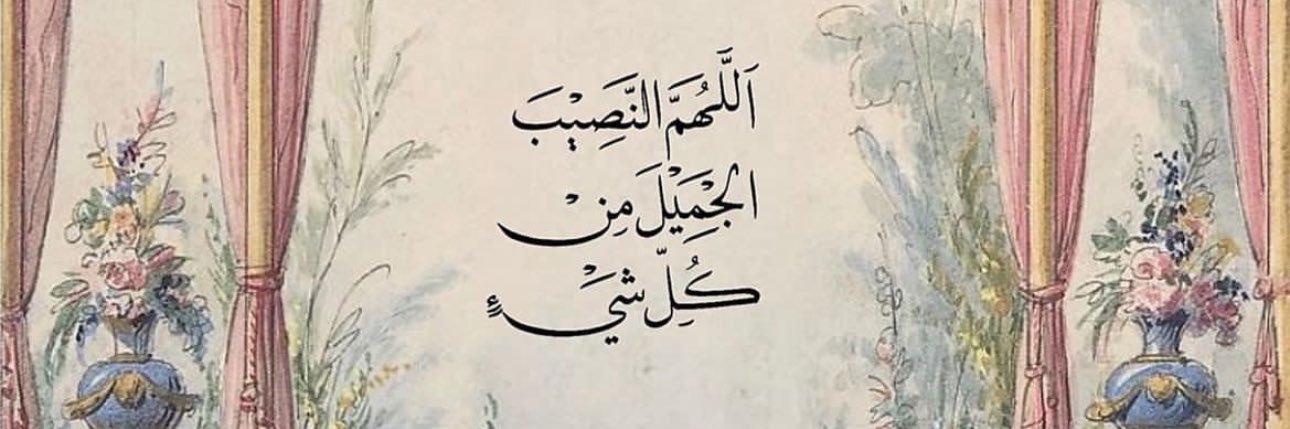 اَللَّهُمَّ النَّصِيْبَ
الْجَمِيْلَ مِنْ
كُلِّ شَيْءٍ